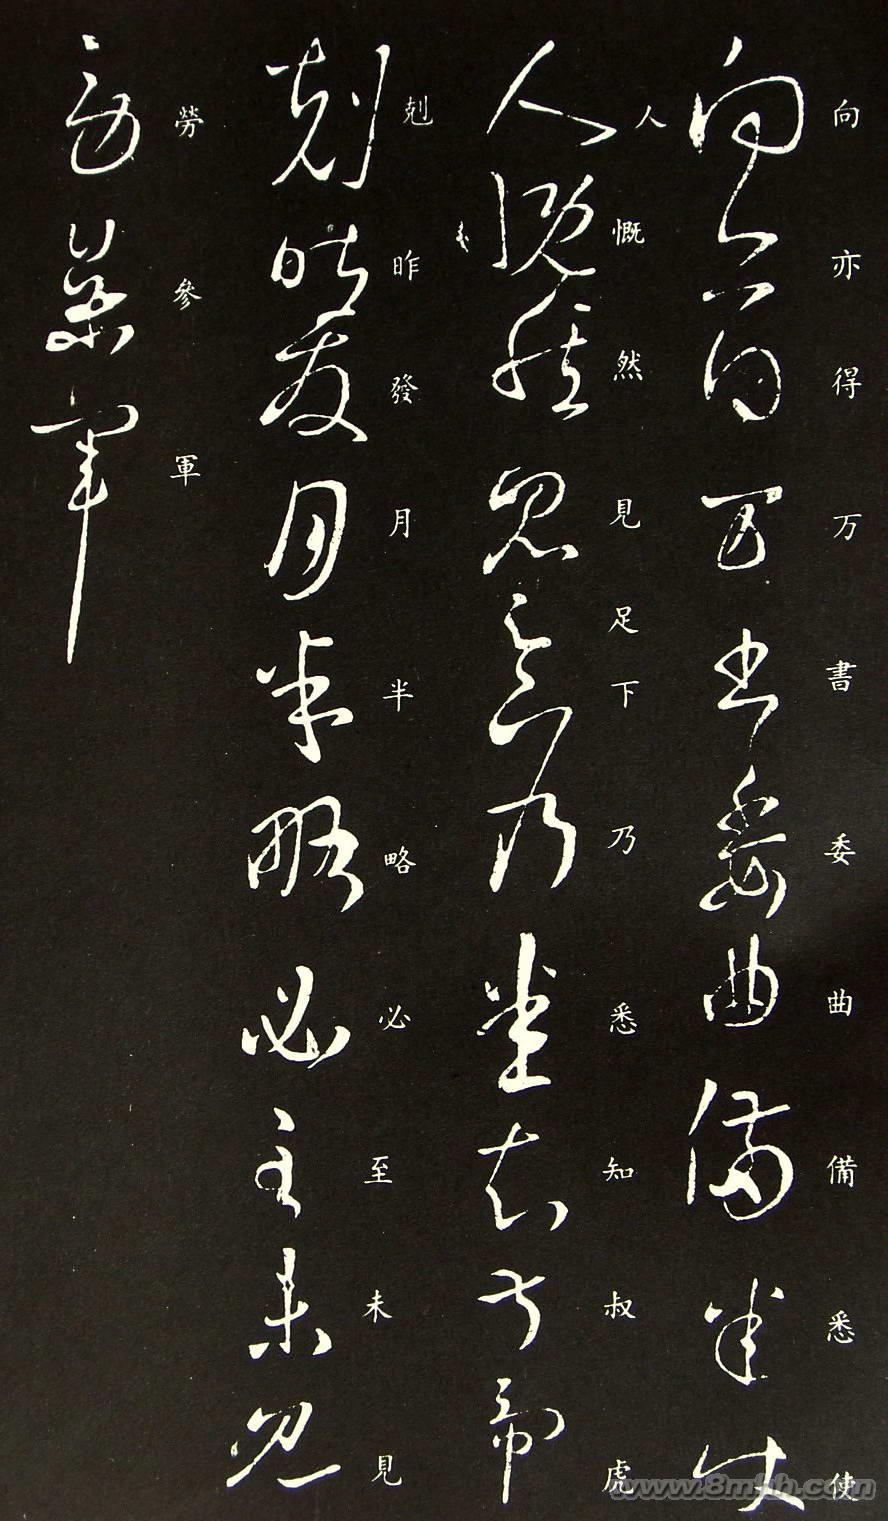 向亦得万書委曲備悉使
人慨然見足下乃悉知叔虎
剋昨發月半略必至未見
勞參軍
www.8mhh.com